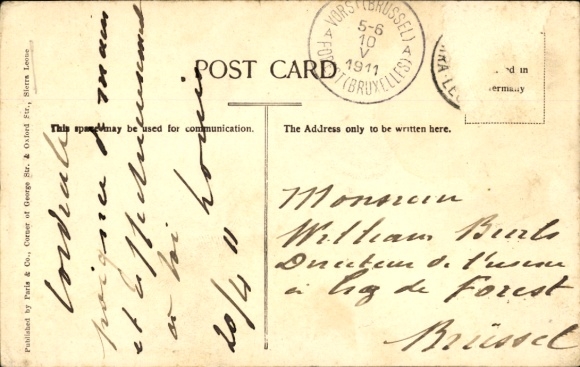 POST CARD
This space may be used for communication.
The Address only to be written here.
Published by Paris & Co., Corner of George Str. & Oxford Str., Sierra Leone
VORST (BRUSSEL)
5-6
10
V
1911
FOREST (BRUXELLES)
RRA-LEO
ed in
ermany
Cordiale
poignée de main
et
20/4 11 Louis
Monsieur
William Burls
Directeur de l'usine
à Gaz de Forest
Brüssel